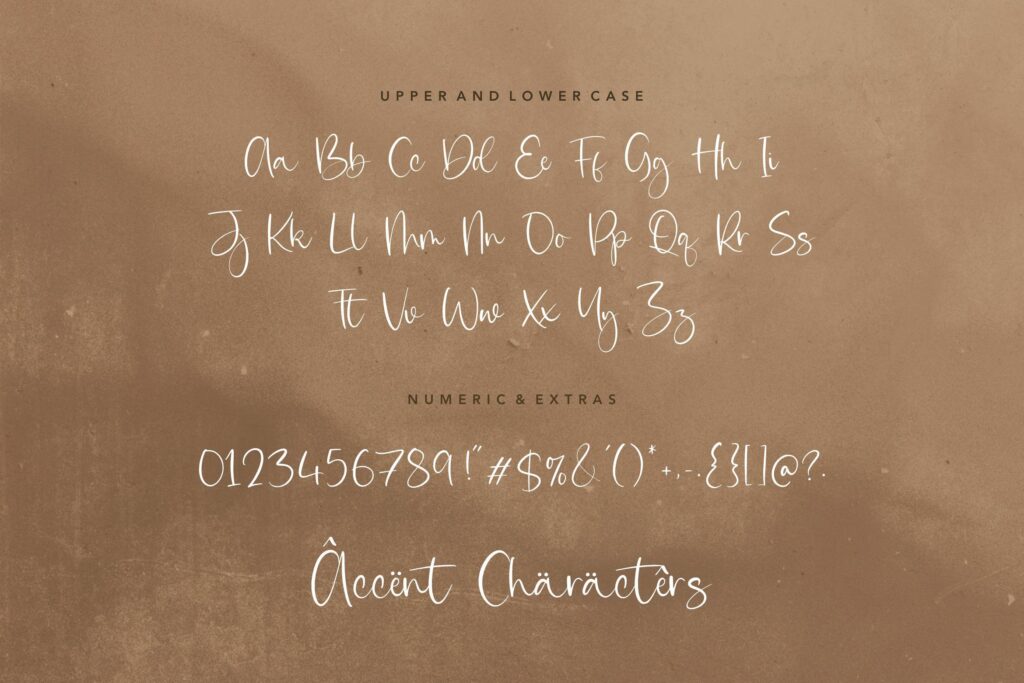 UPPER AND LOWER CASE
Aa Bb Cc Dd Ee Ff Gg Hh Ii
Jj Kk Ll Mm Nn Oo Pp Qq Rr Ss
Tt Vv Ww Xx Yy Zz
NUMERIC & EXTRAS
0123456789!"#$%&'()*+,-.{}[]@?.
Âccënt Chäräctèrs